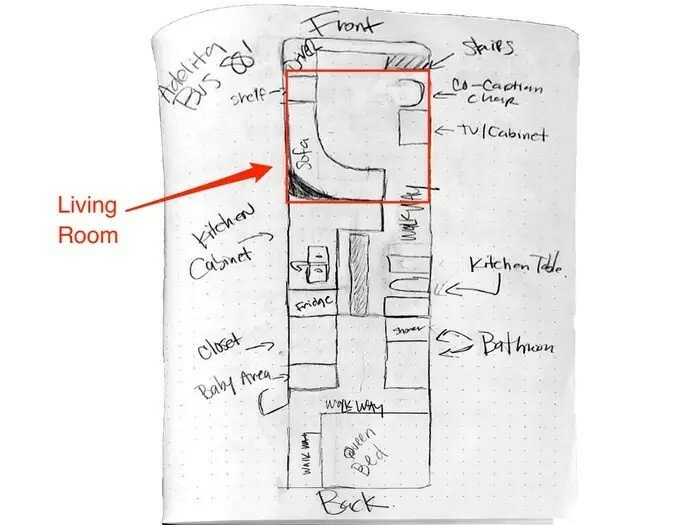 Front
Adelita
Bus 88'
Driver
Stairs
Shelf
Co-Captian
Chair
TV/Cabinet
Sofa
Living
Room
WalkWay
Kitchen
Cabinet
Kitchen Table
Fridge
Shower
Closet
Bathroom
Baby Area
WalkWay
WalkWay
Queen
Bed
Back